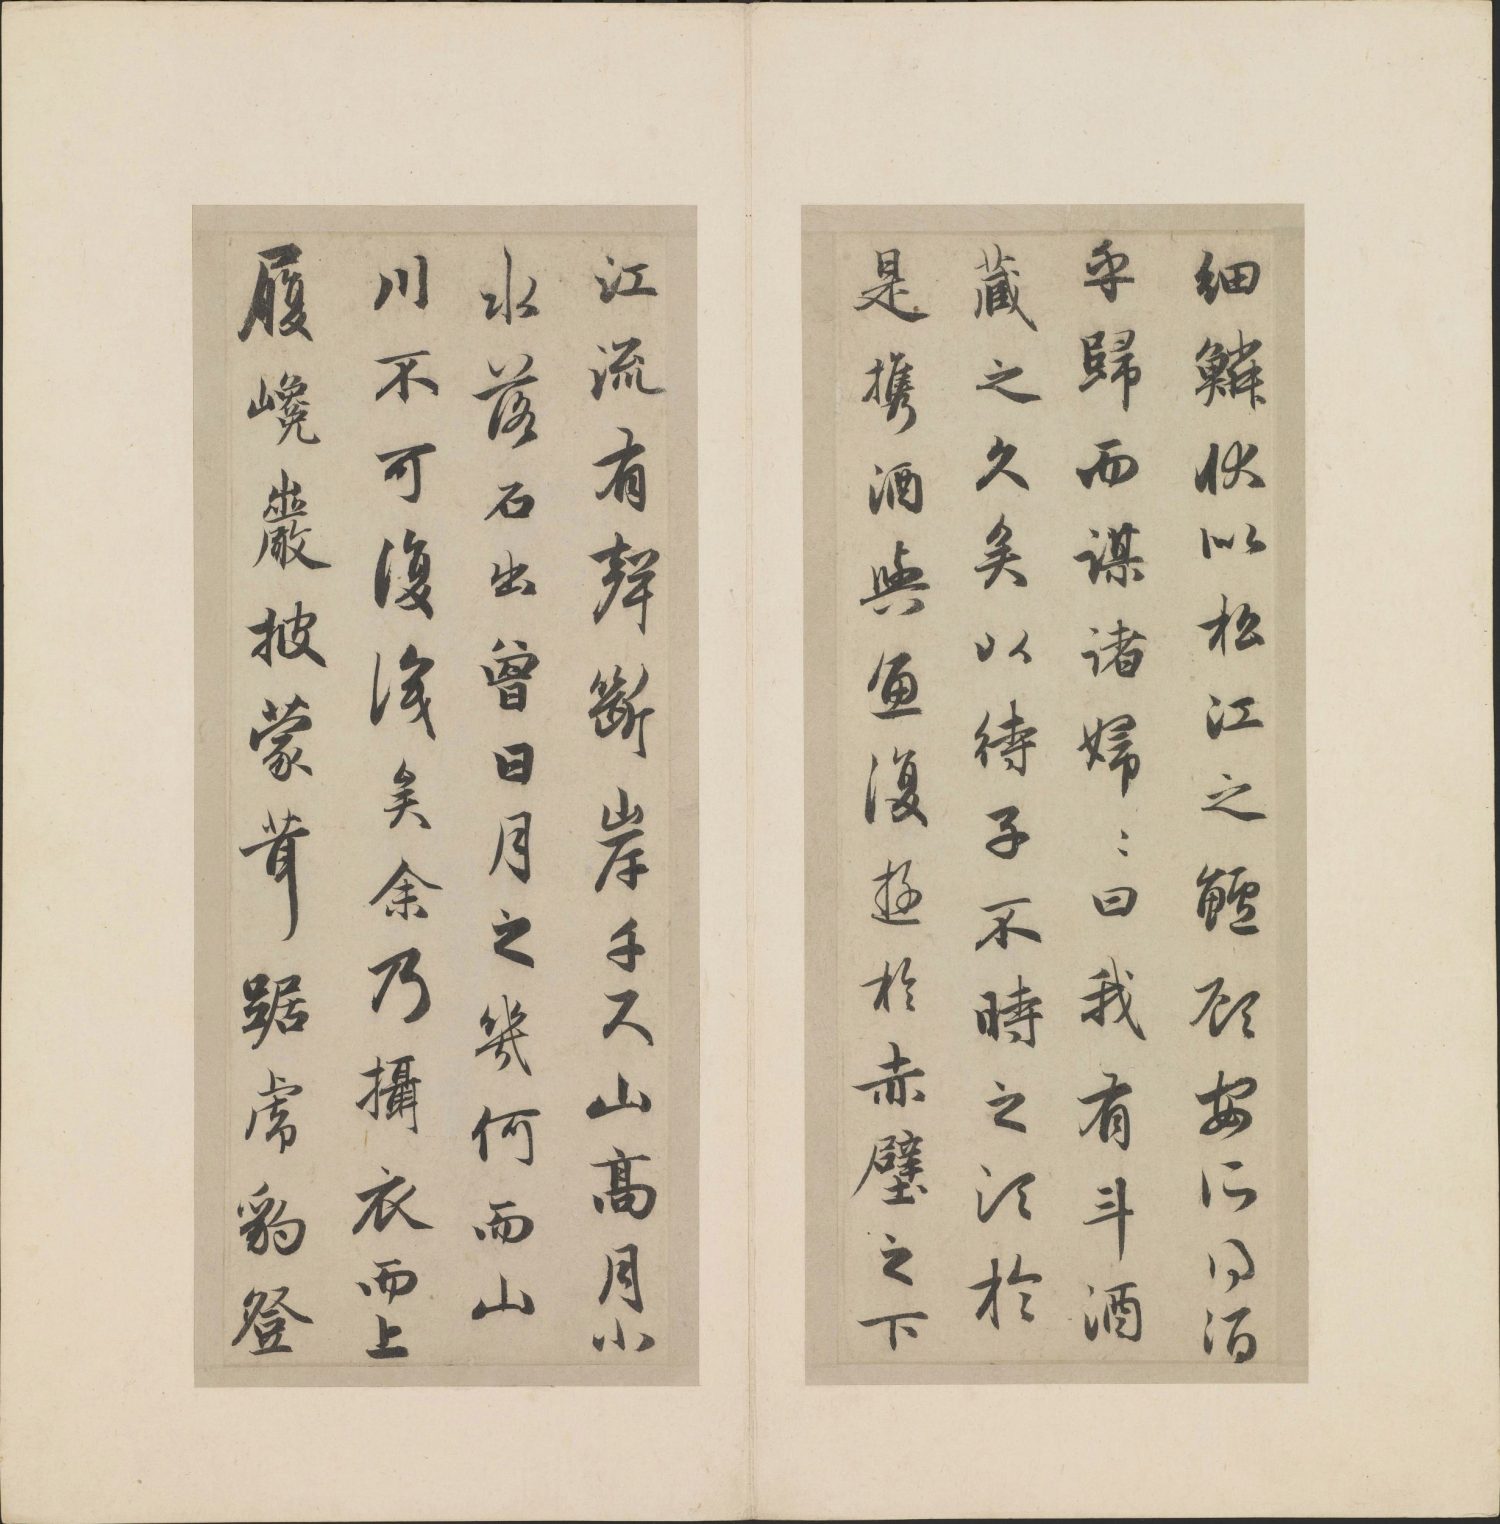 細鱗狀似松江之鱸顧安所得酒
乎歸而謀諸婦〻曰我有斗酒
藏之久矣以待子不時之須於
是攜酒與魚復遊於赤壁之下
江流有聲斷岸千尺山高月小
水落石出曾日月之幾何而山
川不可復識矣余乃攝衣而上
履巉巖披蒙茸踞虎豹登